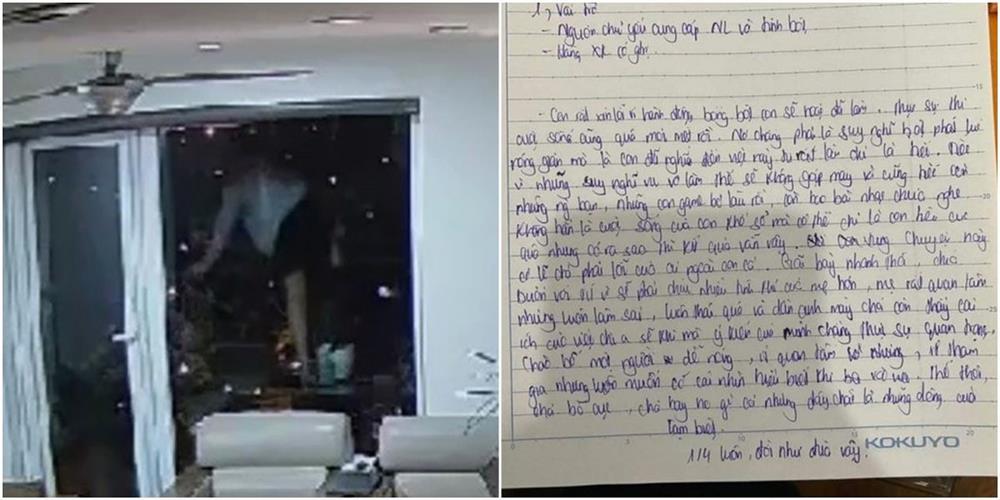 1, Vai trò
- Nguồn chủ yếu cung cấp NL và dinh dưỡng
- Hàng XK có giá
- Con rất xin lỗi vì hành động bồng bột con sẽ hoặc đã làm. Thực sự thì
cuộc sống cũng quá mệt mỏi rồi. Nó chẳng phải là suy nghĩ bột phát lúc
nóng giận mà là con đã nghĩ đến việc này từ rất lâu chỉ là hơi tiếc
vì những suy nghĩ vu vơ làm thế sẽ không gặp mẹ và cũng hết còn
những ng bạn, những con game bỏ lâu rồi, còn bao bài nhạc chưa nghe
không hẳn là cuộc sống của con khổ sở mà có thể chỉ là con tiêu cực
quá nhưng có ra sao thì kết quả vẫn vậy. con nghĩ chuyện này
có lẽ chả phải lỗi của ai ngoài con cả. Giãi bày nhanh thế, chắc
buồn vời vì sẽ phải chịu nhiều thứ
nhưng luôn làm sai, luôn thái quá và đến cuối mày chả còn thấy cái
ích của việc chia sẻ khi mà ý kiến của mình chẳng thực sự quan trọng.
Chào bố một người dễ nóng, ít quan tâm nhưng, ít tham
gia nhưng luôn muốn có cái nhìn hiểu biết khi ba và mẹ. Thế thôi,
chả bố cục, chả hay ho gì cả nhưng đấy chắc là những dòng cuối
tạm biệt.
1/4 luôn, đời như đùa vậy.
KOKUYO